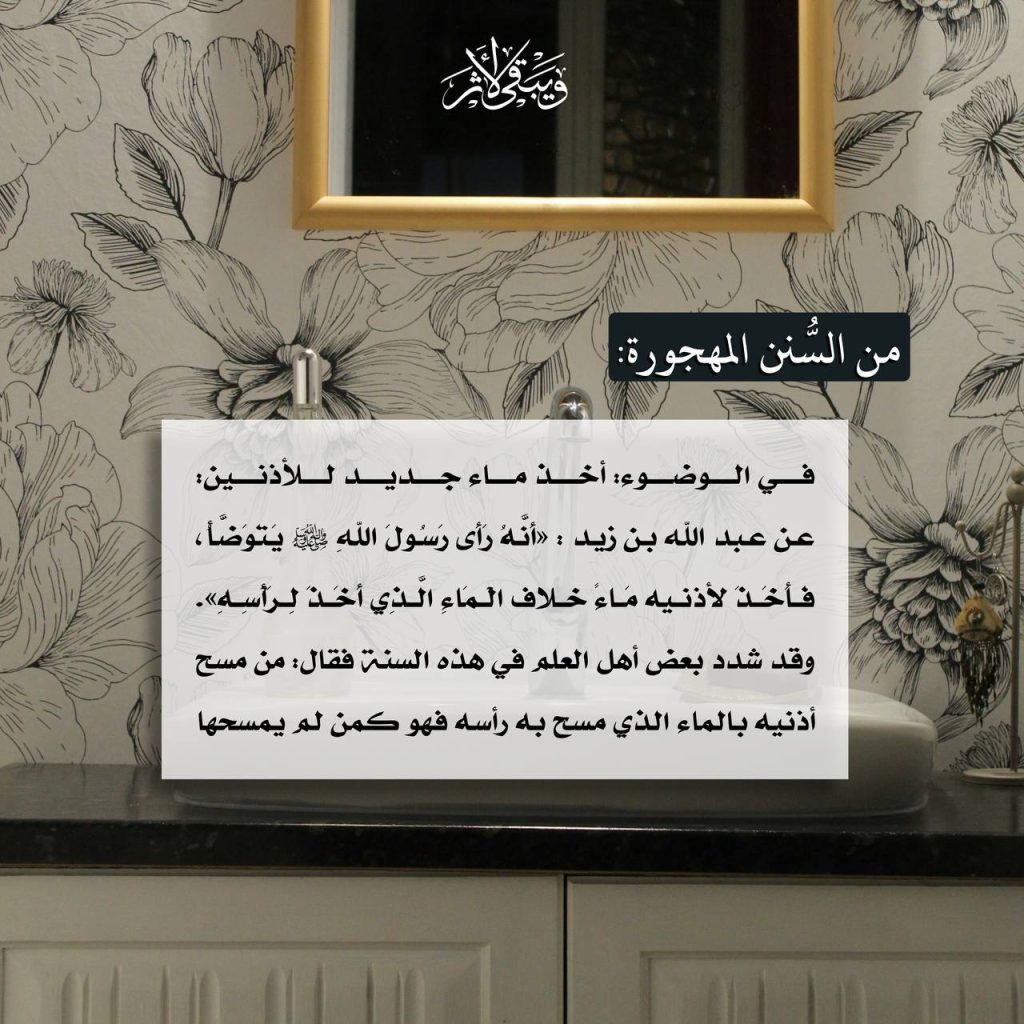 ويبقى الأثر
من السُّنن المهجورة:
في الوضوء: أخذ ماء جديد للأذنين:
عن عبد الله بن زيد : «أنَّهُ رَأى رَسُولَ اللهِ ﷺ يَتوَضَّأ،
فأخَذَ لأذنيه مَاءً خلاف المَاءِ الَّذي أخَذَ لِرَأسِهِ».
وقد شدد بعض أهل العلم في هذه السنة فقال: من مسح
أذنيه بالماء الذي مسح به رأسه فهو كمن لم يمسحها